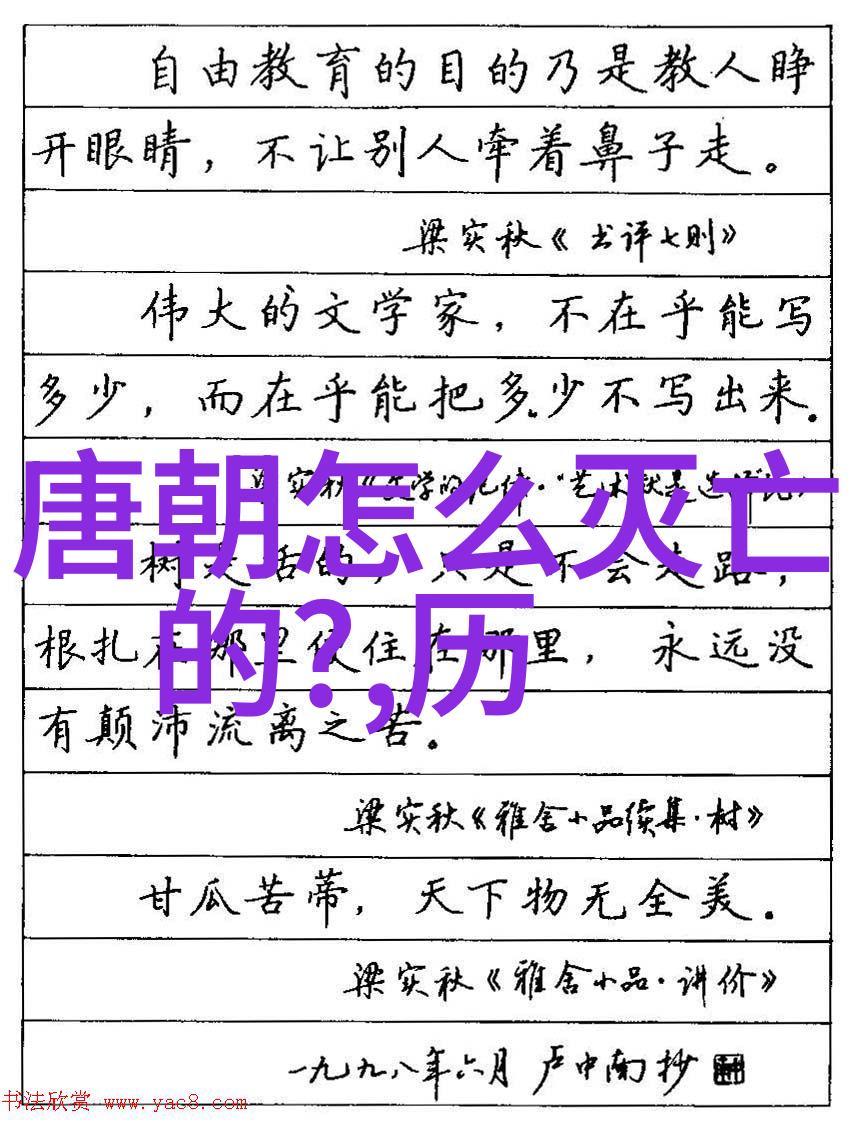 自由教育的目的乃是教人睁
开眼睛，不让别人牵着鼻子走。
梁实秋《书评七则》
伟大的文学家，不在乎能写
多少，而在乎能把多少不写出来。
唐朝怎么灭亡
树是活的，只是不会走路，
的?,历
根扎在那里便住在那里，永远没
有颠沛流离之苦。
梁实秋《雅舍小品续集·树》
甘瓜苦蒂，天下物无全美。
梁实秋《雅舍小品·讲价》
一九九八年六月 卢中南抄
书法欣赏 www.yac8.com